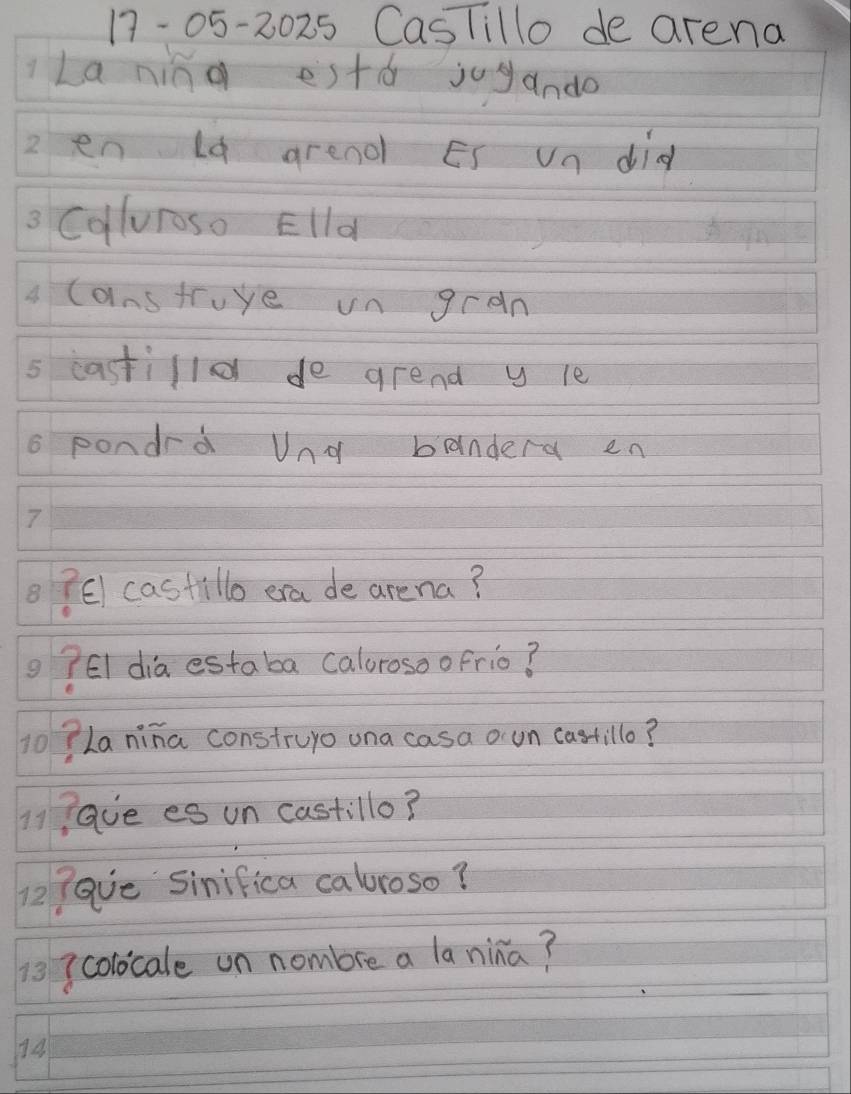 17-05-2025 Castillo de arena
1 La niña está jugando
2 en la arena Es un día
3 Caluroso Ella
4 Construye un gran
5 castillo de arena y le
6 pondrá Una bandera en
7
8 ?El castillo era de arena?
9 ?El día estaba caluroso o frío?
10 ?La niña construyo una casa o un castillo?
11 ?Qúe es un castillo?
12 ?Qúe sinifica caluroso?
13 ?colócale un nombre a la niña?
14